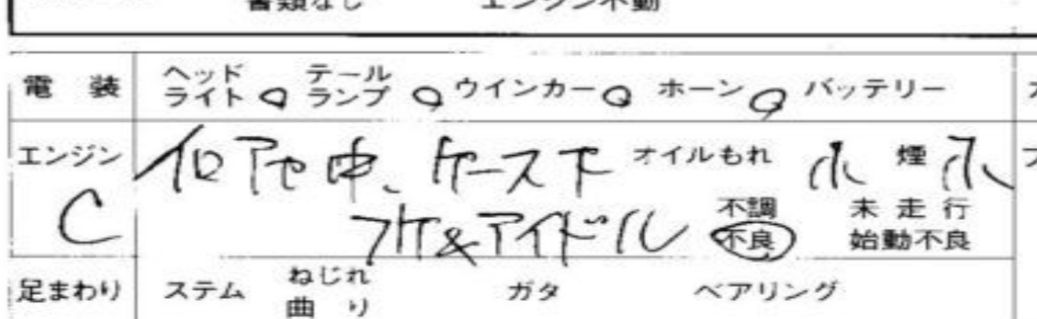 書類なし エンジン不動
電 装 ヘッドライト テールランプ ウインカー ホーン バッテリー
エンジン イロアセ中、ケース下 オイルもれ 小 煙 小
C フケ&アイドル 不調 不良 未走行 始動不良
足まわり ステム ねじれ 曲り ガタ ベアリング